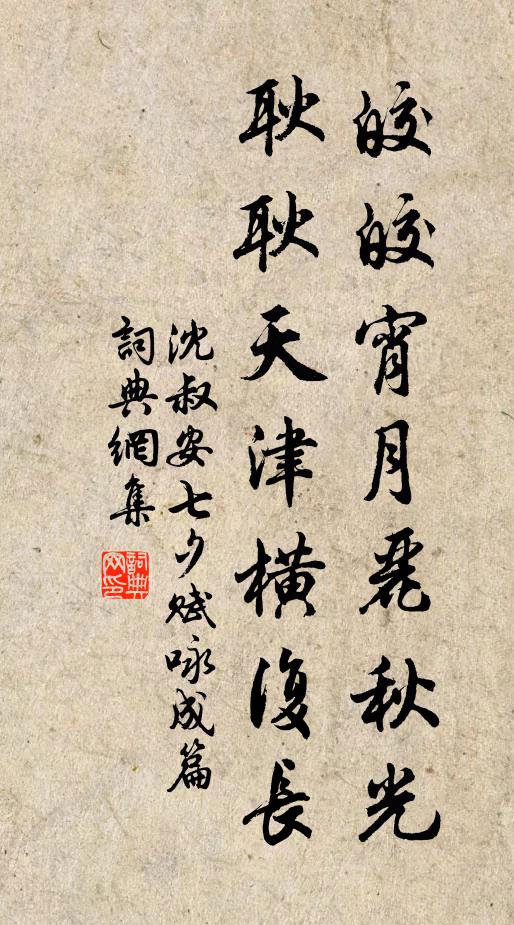 皎皎宵月麗秋光
耿耿天津橫復長
沈叔安七夕賦咏成篇
詞典網集
詞典网印